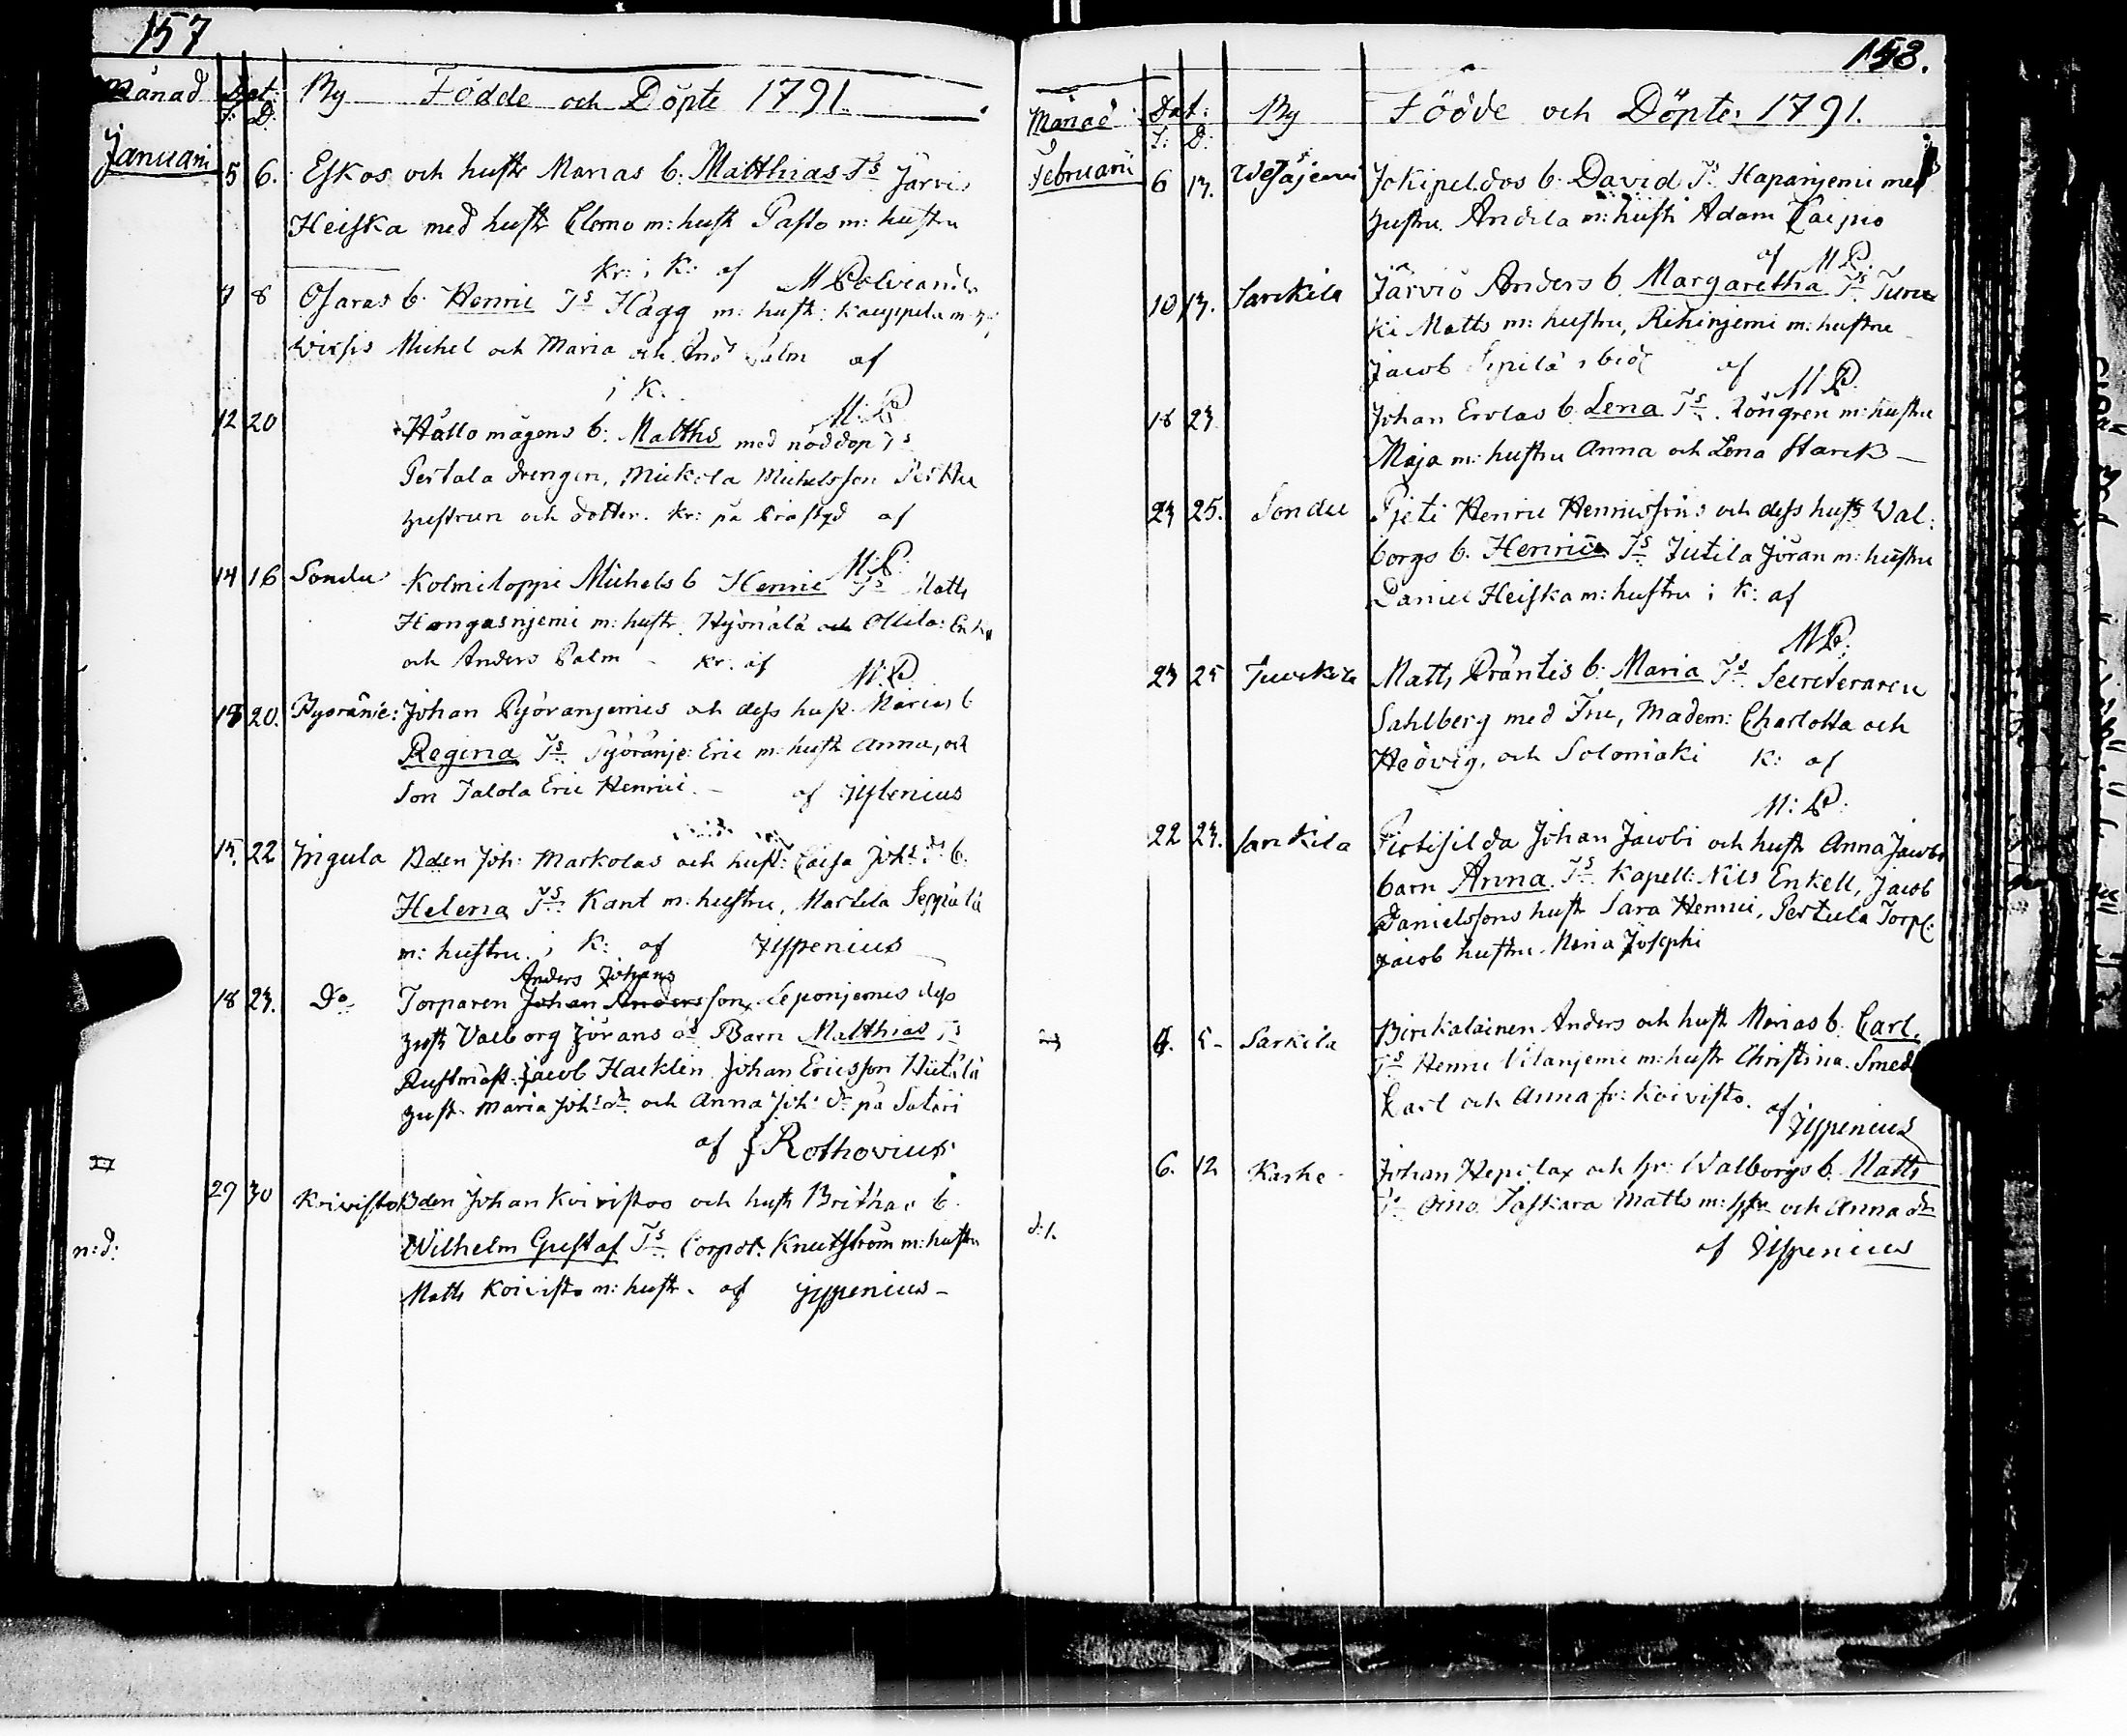 157
Månad Dat: By Födde och Döpte 1791.
F: D:
Januarii 5 6. Eskos och hustr Marias b. Matthias Ts Järvis
Heiska med hustr Clemo m: hustr Pasto m: hustru
Kr: i K: af M Polviander
7 8 Osaras b. Henric Ts Hägg m: hustr: Kauppila m
Michel och Maria och Palm af
i K. M: P
12 20 Hållo mågens b: Matths med nöddop Ts
Pertala drengen, Mickola Michelsson Perttu
hustrun och dotter. Kr: på af
M:P:
14 16 Sondu Kolmiloppi Michels b Henric Ts Matts
Hangasnjemi m: hustr. Hyönälä och Ollila:
och Anders Palm - Kr. af M:P.
18 20. Pyöränie: Johan Pyöranjemis och dess hust. Marias b
Regina Ts Pyöränje: Eric m: hustr Anna, och
Son Jalola Eric Henrici. - af
15. 22 Yngula Bden Joh: Markolas och hust: Caisa Johs dr b.
Helena Ts: Kant m: hustru, Martila Seppälä
m: hustru. i K: af Jyppenius
Anders Johans
18 23. Do Torparen Johan Andersson Leponjemis dess
hustr Valborg Jörans dr Barn Matthias Ts
Rustmäst: Jacob Hacklin Johan Ericsson Hiitälä
hust. Maria Johs dr och Anna Joh: dr på Säteri
af J Rothovius
29 30 Koivisto Bden Johan Koivistos och hustr Brithas b.
n:d: Wilhelm Gustaf Ts. Corpor. Knutström m: hustru
Matts Koivisto m: hustr. af Jyppenius -
158.
Månad Dat: By Födde och Döpte: 1791.
F: D:
Februarii 6 13. Wesajemi Jokipeldos b. David Ts Hapanjemi med
hustru. Andila m: hustr Adam Caipio
af M P.
10 13. Sarkila Järviö Anders b. Margaretha Ts. Turu
ki Matts m: hustru, Rihinjemi m: hustru
Jacob Sipilä af M P.
18 23 Johan Erolas b. Lena Ts. Löngren m: hustru
Maja m: hustru Anna och Lena Starck -
23 25. Sondu Pjeti Henric Henricssons och dess hustr Val:
borgs b. Henrica Ts Jutila Jöran m: hustru
Daniel Heiska m: hustru i K: af
M P.
23 25 Matts Präntis b: Maria Ts. Secreteraren
Sahlberg med Fru, Madem: Charlotta och
Hedvig, och Solomäki K: af
M: P:
22 23. Sarkila Johan Jacobi och hustr Anna Jacobs
barn Anna. Ts. Kapell: Nils Enkell, Jacob
Danielssons hustr Sara Henrici, Pertula Torp:
Jacob hustru. Maria Josephi
Sarkila Pirikalainen Anders och hustr Marias b. Carl.
Ts Henric Vilanjemi m: hustr Christina. Smed
Carl och Anna fr: Koivisto. af Jyppenius
6. 12 Karhe - Johan Hepolax och hr: Walborgs b. Matts
Ts Oino Taskara Matts m: hstr och Anna dr
af Jyppenius